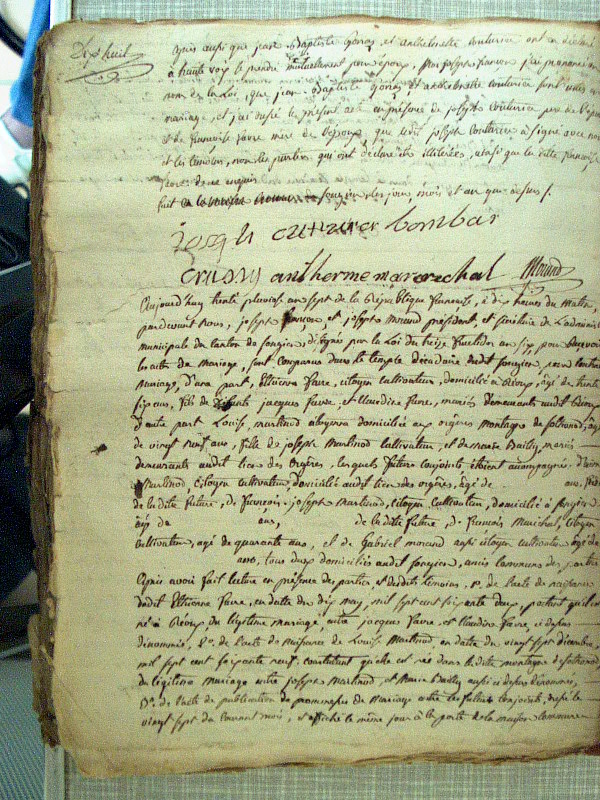 Dix huit
après aussi que jean Baptiste et anthelmette couturier ont eu déclaré
à haute voix se prendre mutuellement pour époux, moi joseph françois j'ai prononcé au
nom de la Loi, que jean Baptiste et anthelmette couturier sont unis en
mariage, et j'ai rédigé le présent acte en présence de joseph couturier père de l'épouse
et de françoise favre mère de l'epoux que ledit joseph couturier a signé avec nous
et les temoins, non les parties qui ont déclaré être illitérées, ainsi que la ditte françoise
favre de ce enquis
fait songieu, les jour, mois et an que dessus /.
joseph couturier bombar
crussy anthermemarerechal Morand
Aujourd'huy trente pluviose an sept de la République française, à dix heures du Matin,
pardevant nous, joseph françois, et joseph morand président, et secrétaire de L'administration
municipale du canton de songieu désignés par la Loi du treize fructidor an six pour recevoir
les actes de Mariage, sont comparus dans le temple décadaire dudit songieu, pour contracter
Mariage, d'une part, Étienne Favre, citoyen cultivateur, domicilié à Béoup, agé de trente
six ans, fils de jacques favre, et claudine favre, mariés demeurants audit Béoup
d'autre part Louise martinod citoyenne domiciliée aux orgères montagne de sothonod, agée
de vingt neuf ans, fille de joseph Martinod cultivateur, et de marie Bailly, mariés
demeurants audit lieu des orgères, lesquels futurs conjoints étoient accompagnés
Martinod citoyen cultivateur domicilié audit lieu des orgères, agé de ans,
de la dite future, de françois-joseph martinod, citoyen cultivateur, domicilié à songieu
agé de ans, de la dite future, de françois Maréchal, citoyen
cultivateur, agé de quarante ans, et de Gabriel morand aussi citoyen cultivateur agé de
ans, tous deux domiciliés audit songieu, amis communs des parties
Après avoir fait lecture en présence des parties, et desdits temoins, 1°. de l'acte de naissance
dudit Étienne Favre, en datte du dix may, mil sept cent soixante deux portant qu'il est
né à Béoup du légitime mariage entre jacques favre, et claudine favre, ci dessus
dénommés, 2°. de l'acte de naissance de Louise Martinod en datte du vingt sept décembre,
mil sept cent soixante neuf, constatant qu'elle est née dans la ditte montagne de sothonod
du légitime mariage entre joseph martinod, et Marie Bailly aussi ci dessus dénommés,
3°. de l'acte de publication de promesses de Mariage entre les futurs conjoints,
vingt sept du courant mois, et affiché le même jour à la porte de la maison commune